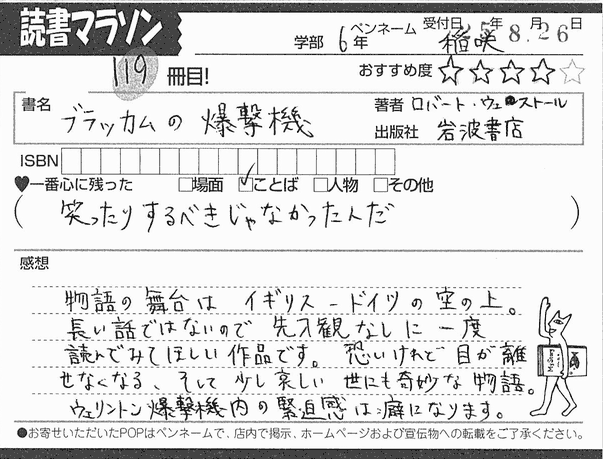 読書マラソン
学部 6年 ペンネーム 稲咲 受付日 25年8月26日
119冊目!
おすすめ度 ★★★★☆
書名 ブラッカムの爆撃機
著者 ロバート・ウェストール
出版社 岩波書店
ISBN
♥一番心に残った □場面 ☑ことば □人物 □その他
(笑ったりするべきじゃなかったんだ)
感想
物語の舞台は イギリス－ドイツの空の上。
長い話ではないので 先入観なしに一度
読んでみてほしい作品です。恐いけれど目が離
せなくなる、そして少し哀しい 世にも奇妙な物語。
ウェリントン爆撃機内の緊迫感は癖になります。
●お寄せいただいたPOPはペンネームで、店内で掲示、ホームページおよび宣伝物への転載をご了承ください。